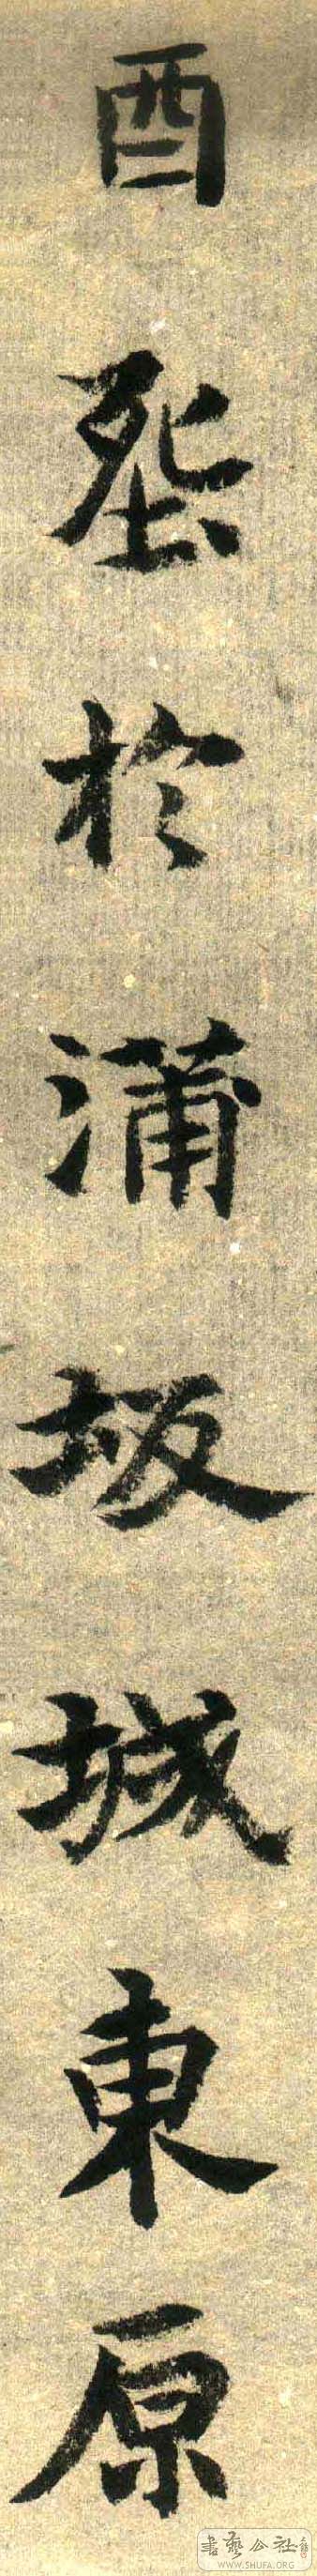 酉塟於蒲坂城東原
書藝公社
WWW.SHUFA.ORG